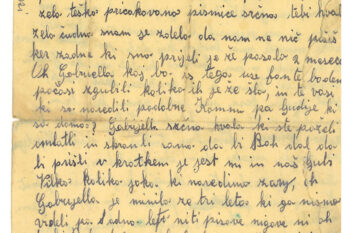 zelo težko pričakovano pismice srčno tebi hvala
zelo čudno smem se zdelo da nam ne nič pišiš
ker zadne ki smo prijeli je že posalo 2 mosece
Oh Gabrijella kaj bo is tega use fante bodemo
počosi zgubili koliko jih je že šlo, in te vasi
ki so naredili podobne Kamnu pa ljudje ki
so doma? Gabrijella srčna hvala ki ste poželi
omlatli in shranli samo da bi Boh dal da
bi prišli v kratkem je jest mi in naš ljubi
Vilko koliko joka ki naredimo zanj, oh
Gabrijella je minilo že tri leta ki ga nismo
vidli pa žadno let niti pisave nigove ni oh